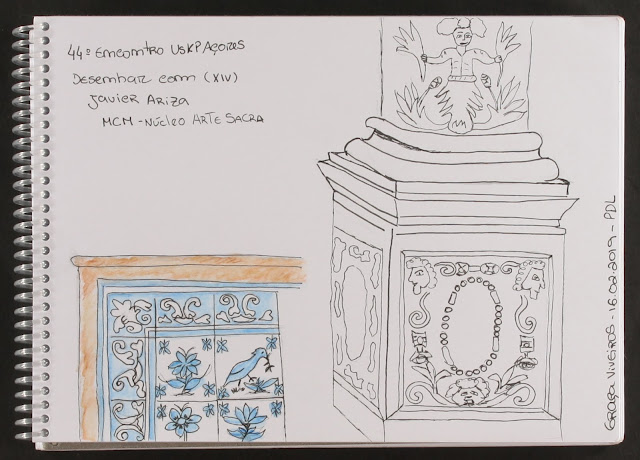 44º Encontro USKP AÇORES
Desenhar com (XIV)
Javier Ariza
MCM - Núcleo Arte Sacra
Graça Viveiros - 16.02.2019 - PDL